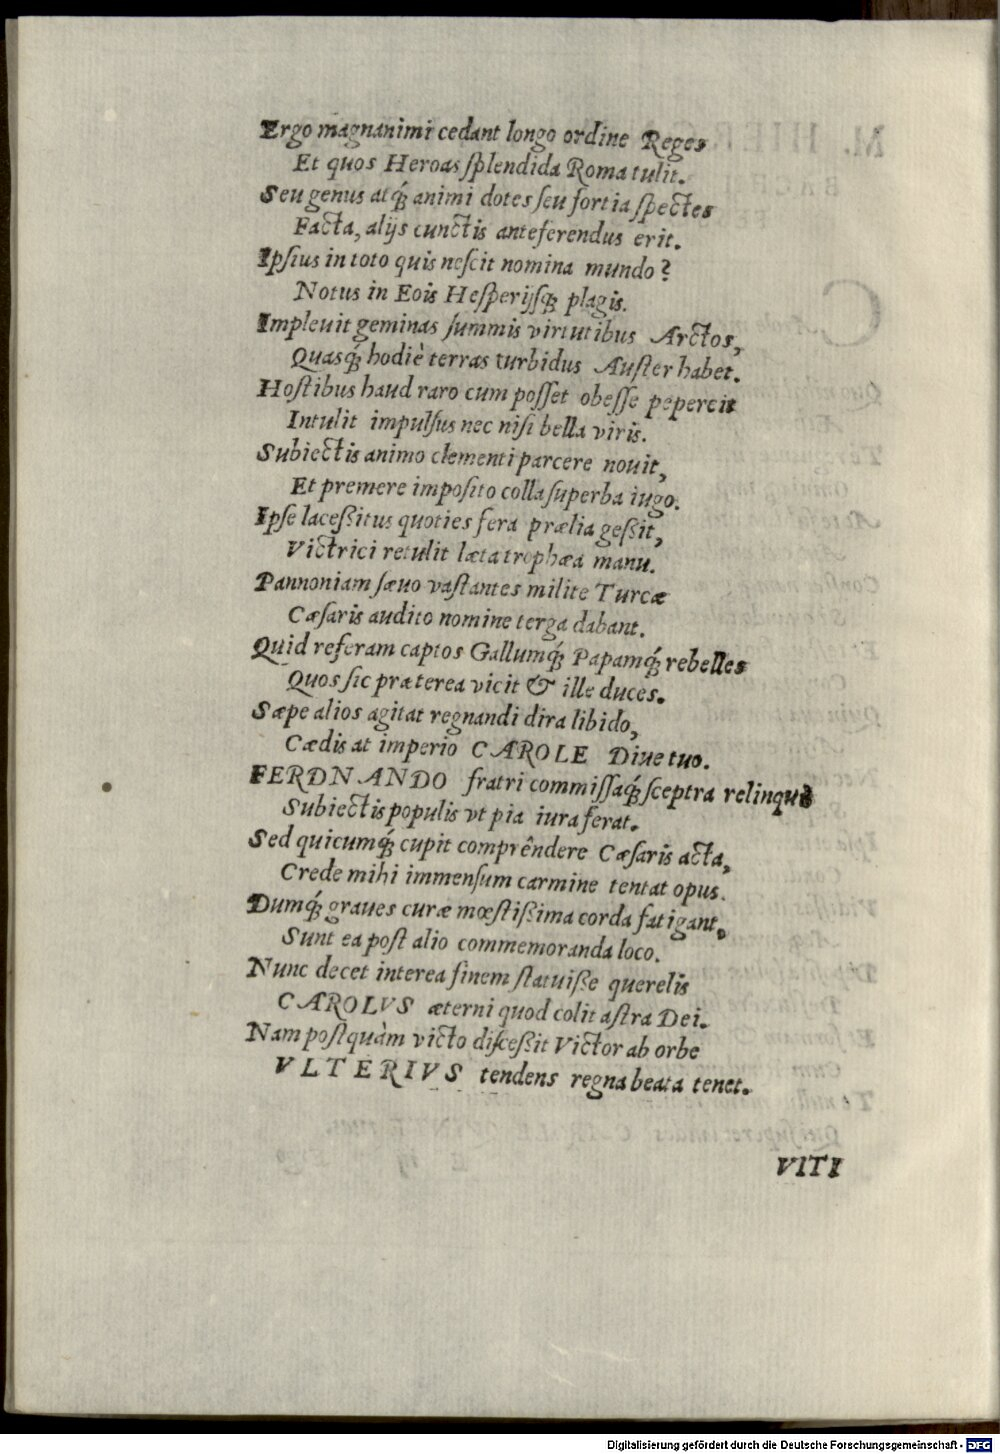 Ergo magnanimi cedant longo ordine Reges
Et quos Heroas ſplendida Roma tulit.
Seu genus atq́; animi dotes ſeu fortia ſpectes
Facta, alijs cunctis anteferendus erit.
Ipſius in toto quis neſcit nomina mundo?
Notus in Eois Heſperijſq́; plagis.
Impleuit geminas ſummis virtutibus Arctos,
Quasq́; hodiè terras turbidus Auſter habet.
Hoſtibus haud raro cum poſſet obeſſe pepercit
Intulit impulſus nec niſi bella viris.
Subiectis animo clementi parcere nouit,
Et premere impoſito colla ſuperba iugo.
Ipſe laceßitus quoties fera prælia geßit,
Victrici retulit læta trophæa manu.
Pannoniam ſæuo vaſtantes milite Turcæ
Cæſaris audito nomine terga dabant.
Quid referam captos Gallumq́; Papamq́; rebelles
Quos ſic præterea vicit & ille duces.
Sæpe alios agitat regnandi dira libido,
Cædis at imperio CAROLE Diue tuo.
FERDNANDO fratri commiſſaq́; ſceptra relinquis
Subiectis populis vt pia iura ferat.
Sed quicumq́; cupit comprêndere Cæſaris acta,
Crede mihi immenſum carmine tentat opus.
Dumq́; graues curæ mœſtißima corda fatigant,
Sunt ea poſt alio commemoranda loco.
Nunc decet interea finem ſtatuiße querelis
CAROLVS æterni quod colit aſtra Dei.
Nam poſtquàm victo diſceßit Victor ab orbe
VLTERIVS tendens regna beata tenet.
VITI
Digitalisierung gefördert durch die Deutsche Forschungsgemeinschaft - DFG